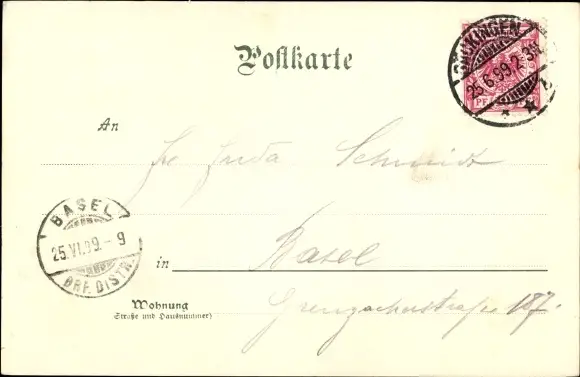 Postkarte
SÄCKINGEN
25.6.99. 2-3N.
PFENNIG
An
Fr Frida Schmidt
BASEL
25.VI.99.-9
BRF. DISTR.
in Basel
Wohnung
(Straße und Hausnummer)
Grenzacherstraße 187.